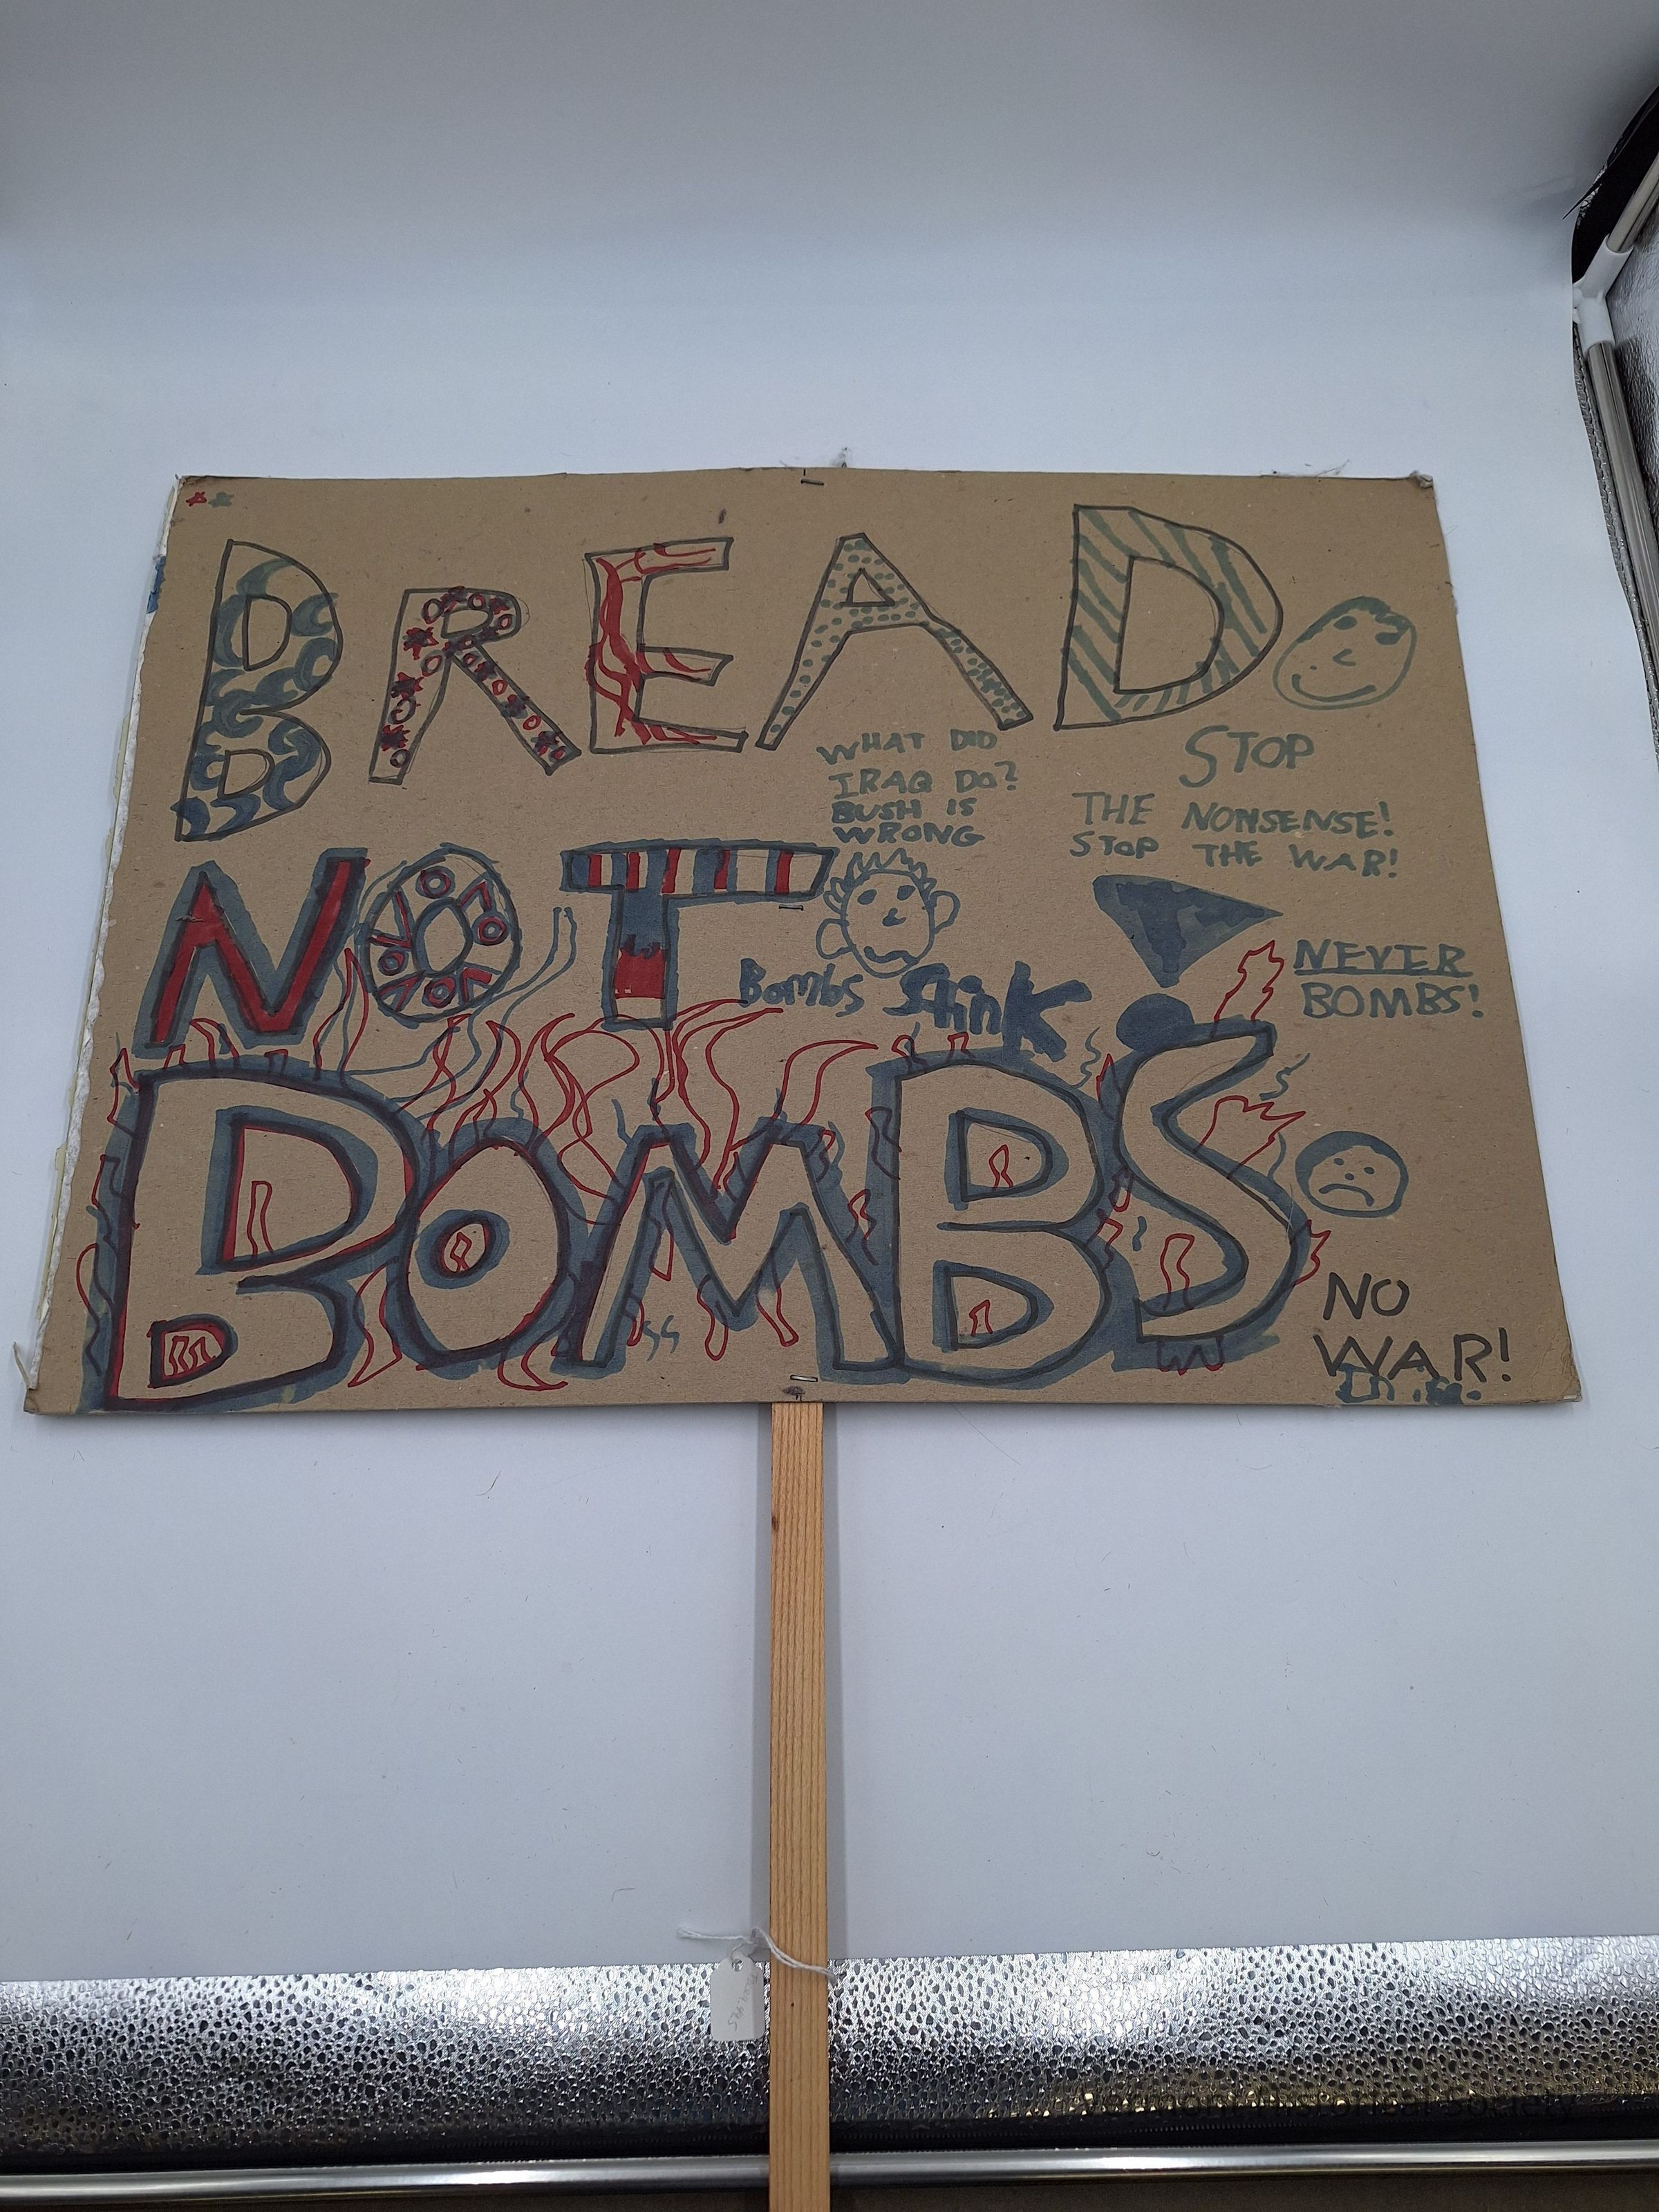 BREAD
WHAT DID
IRAQ DO?
BUSH IS
WRONG
STOP
THE NONSENSE!
STOP THE WAR!
NOT
Bombs Stink
NEVER
BOMBS!
BOMBS
NO
WAR!
Vermont Historical Society